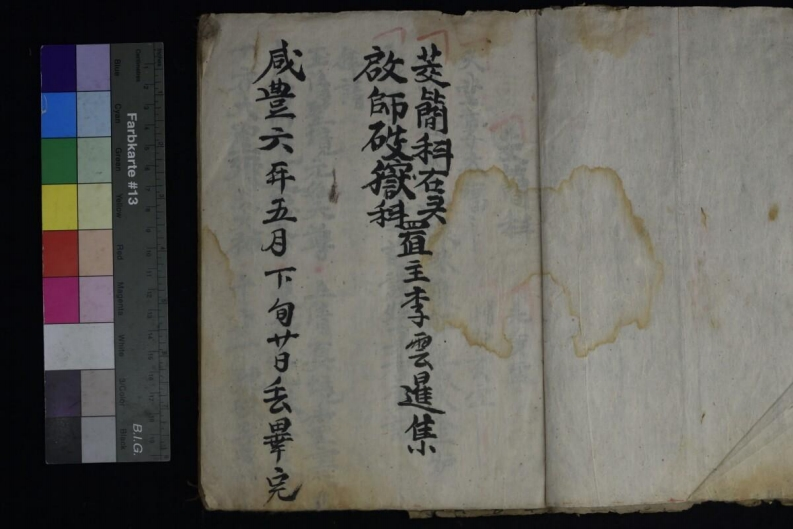 茭簡科
啟師破獄科
置主李雲暹集
咸豐六年五月下旬廿日丢畢完
Farbkarte #13
Blue
Cyan
Green
Yellow
Red
Magenta
White
3/Color
Black
B.I.G.